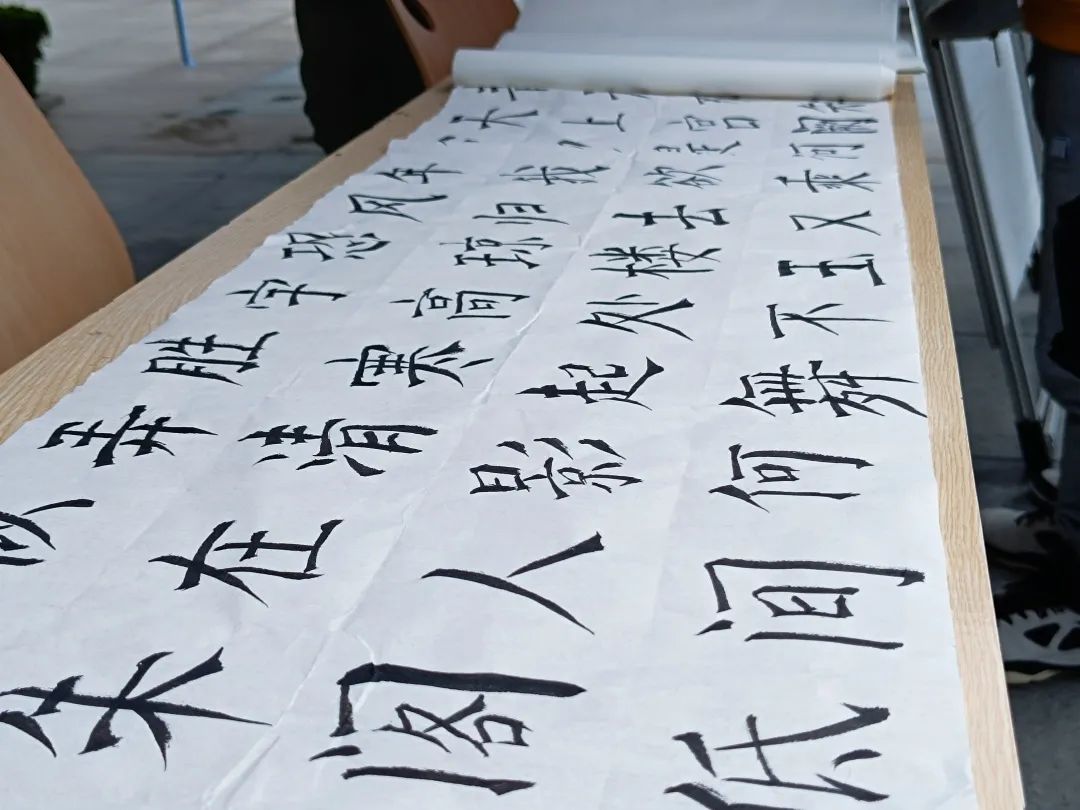 天上宫阙
今夕是何
年我欲乘
风归去又
恐琼楼玉
宇高处不
胜寒起舞
弄清影何
似在人间
朱阁低